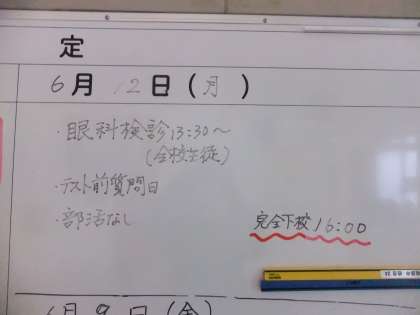 定
6月 12日(月)
・眼科検診 13:30〜
(全校生徒)
・テスト前質問日
・部活なし
完全下校 16:00
6月9日(金)